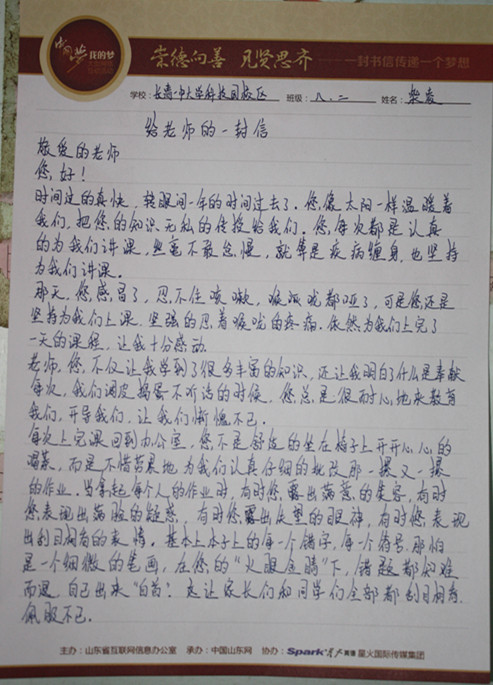 中国梦 我的梦
崇德向善 见贤思齐 一封书信传递一个梦想
学校：长清 大学科技园校区 班级：八.二 姓名：
给老师的一封信
敬爱的老师
您,好！
时间过的真快，转眼间一年的时间过去了.您像太阳一样温暖着
我们,把您的知识无私的传授给我们.您,每次都是认真
的为我们讲课,丝毫不敢怠慢,就算是疾病缠身,也坚持
为我们讲课.
那天,您感冒了,忍不住咳嗽,喉咙都哑了,可是您还是
坚持为我们上课.坚强的忍着喉咙的疼痛.依然为我们上完了
一天的课程,让我十分感动.
老师,您,不仅让我学到了很多丰富的知识,还让我明白了什么是奉献
每次,我们调皮捣蛋不听话的时候,您总是很耐心地来教育
我们,开导我们,让我们惭愧不已.
每次上完课回到办公室,您不是舒适的坐在椅子上开开心心的
喝茶,而是不惜劳累地为我们认真仔细的批改那一摞又一摞
的作业.当拿起每个人的作业时,有时您露出满意的笑容,有时
您表现出满脸的疑惑,有时您露出失望的眼神,有时您表现
出刮目相看的表情,基本上本子上的每一个错字,每一个符号,那怕
是一个细微的笔画,在您的“火眼金睛”下,错题都知难
而退,自己出来“自首”.这让家长们和同学们全部都刮目相看,
佩服不已.
主办：山东省互联网信息办公室 承办：中国山东网 协办：Spark星火英语 星火国际传媒集团